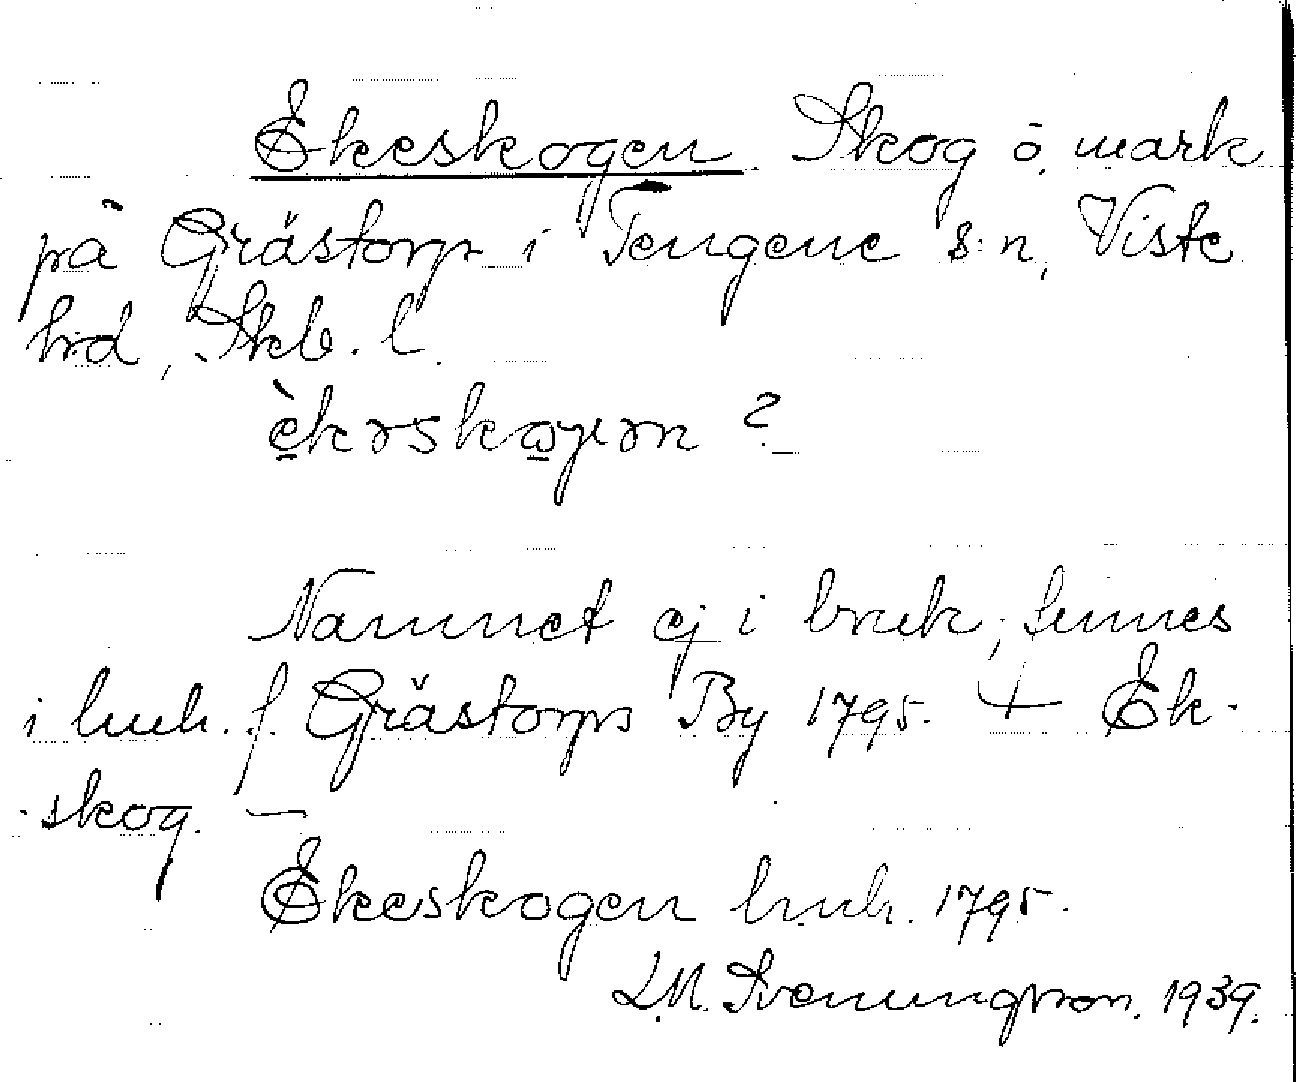 Ekeskogen. Skog o. mark
på Grästorp i Tengene s:n, Viste
hd, Skb. l.
èkəskoγən ?
Namnet ej i bruk; finnes
i huh. f. Grästorps By 1795. + Ek-
skog. –
Ekeskogen huh. 1795.
L.M. Svenungsson. 1939.